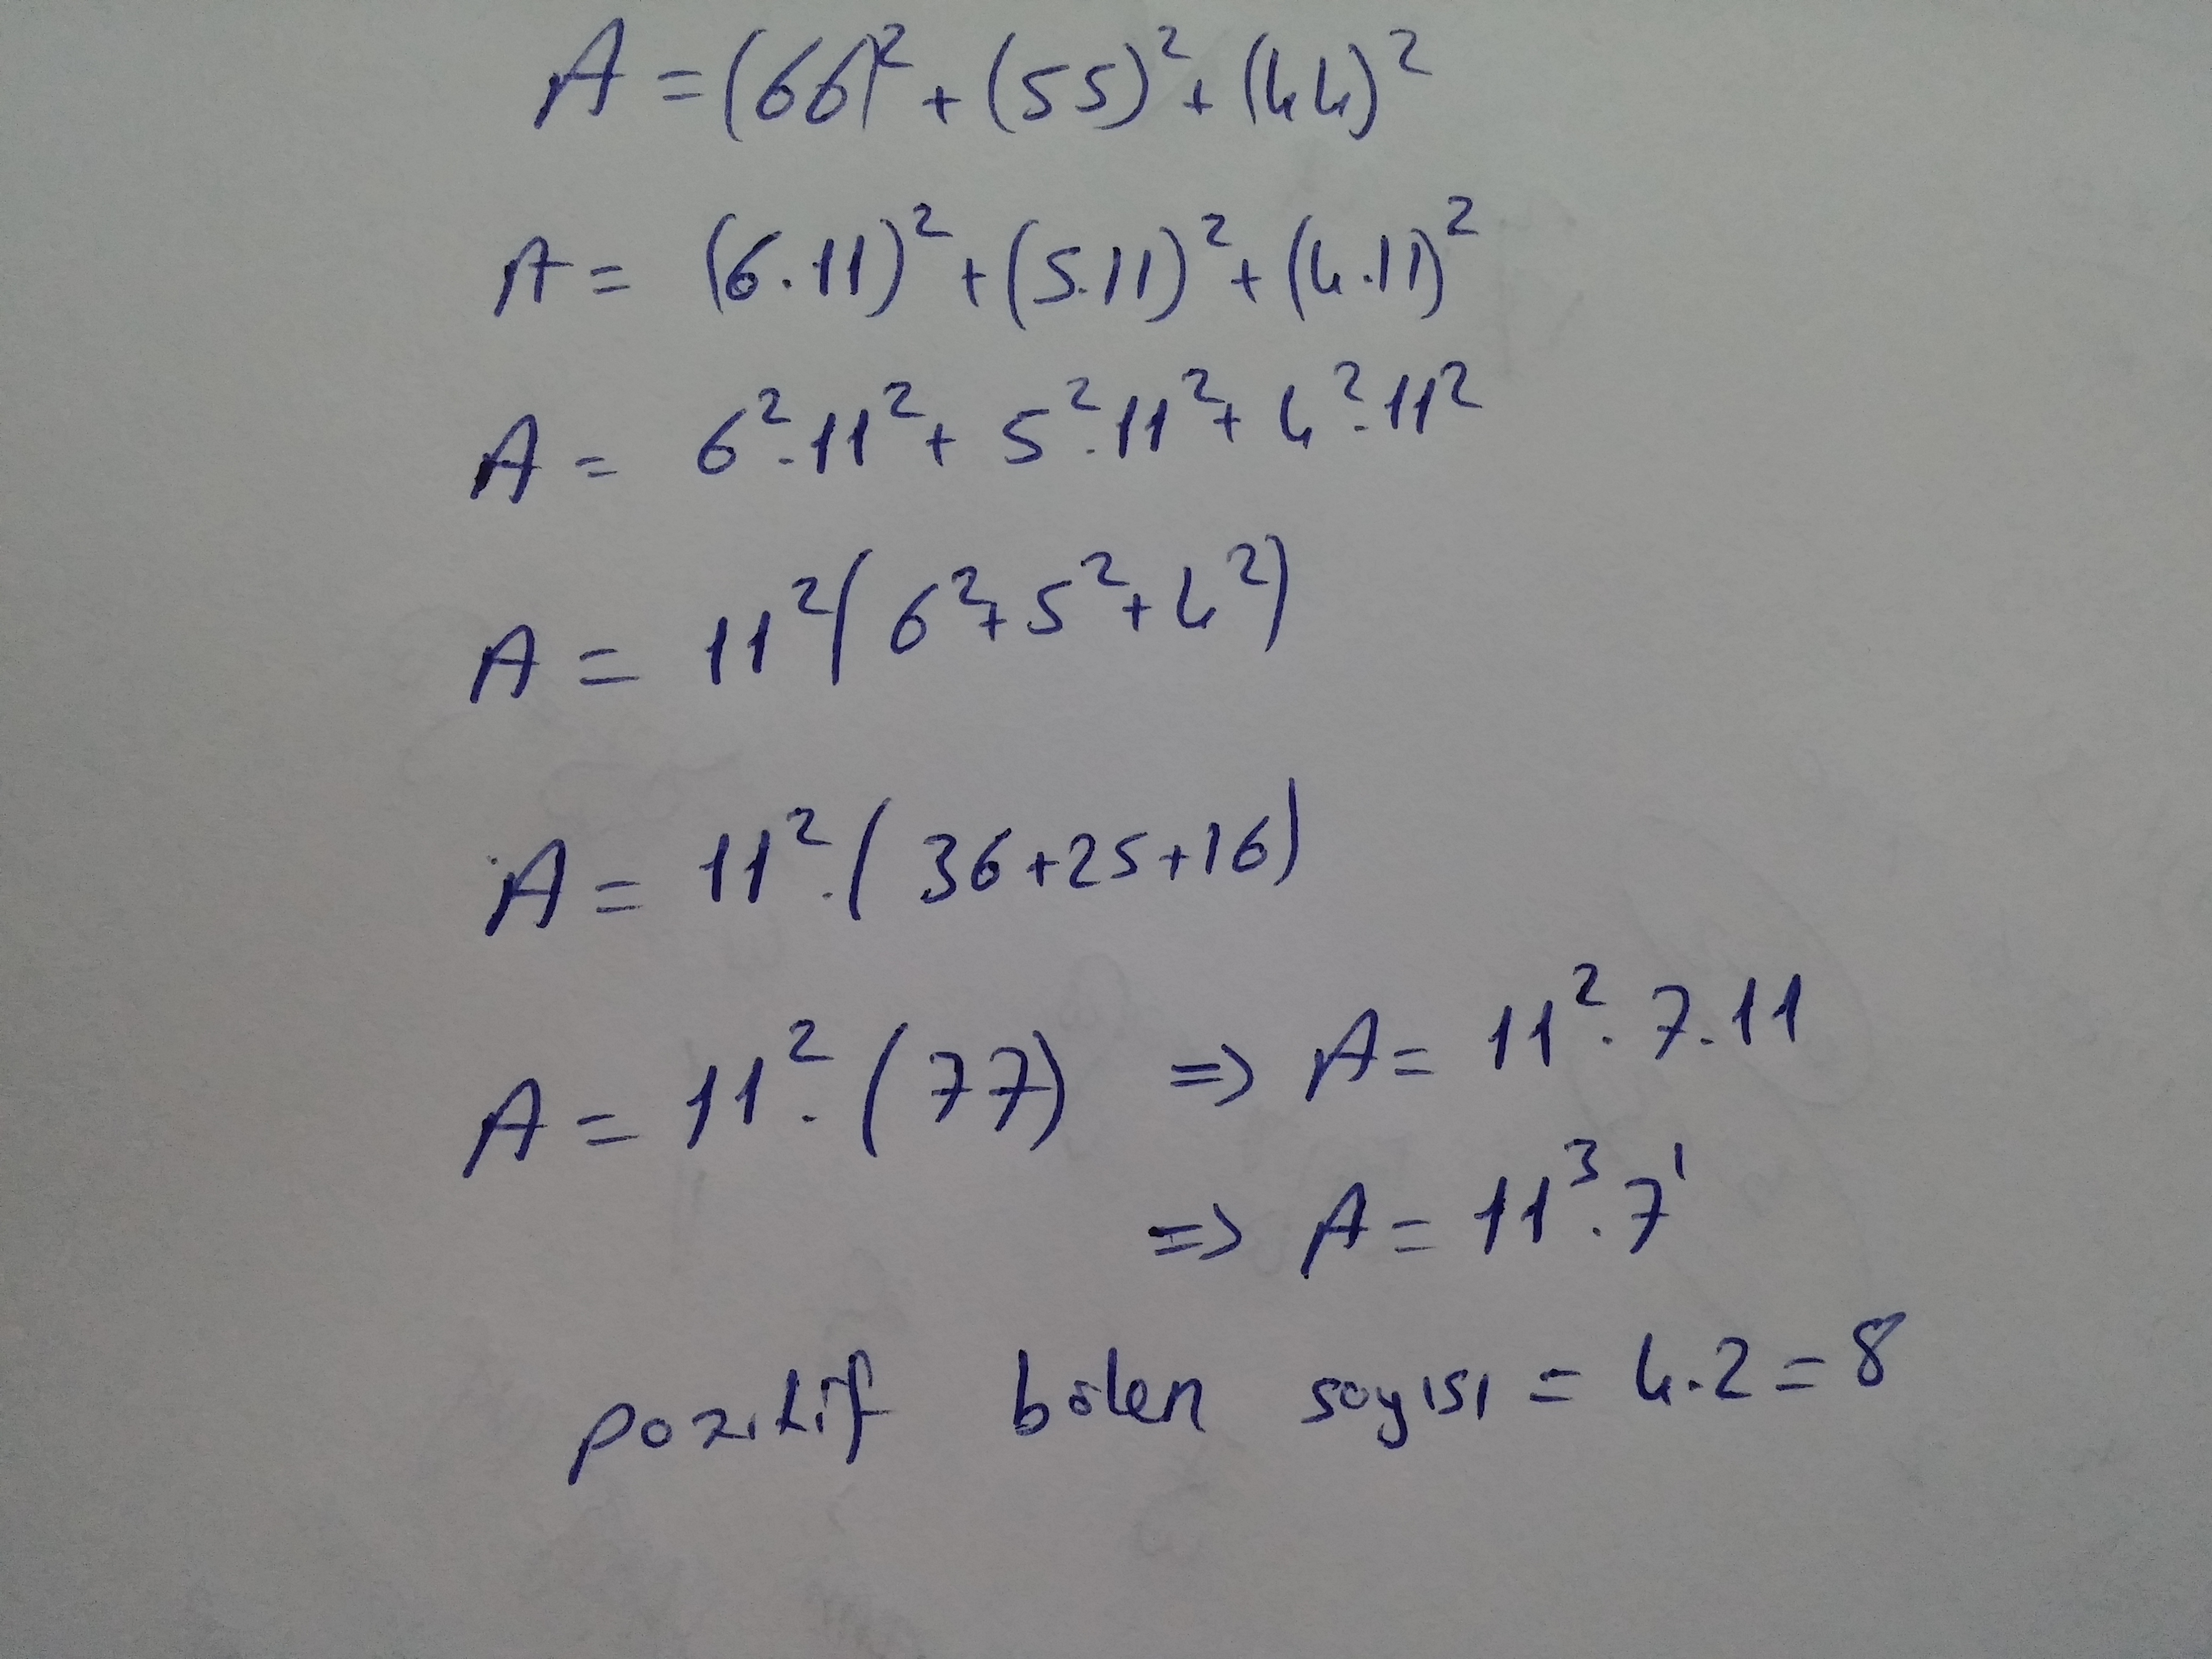 A = (66)² + (55)² + (44)²
A = (6.11)² + (5.11)² + (4.11)²
A = 6².11² + 5².11² + 4².11²
A = 11²(6²+5²+4²)
A = 11².(36+25+16)
A = 11².(77) => A = 11².7.11
=> A = 11³.7¹
pozitif bölen sayısı = 4.2 = 8